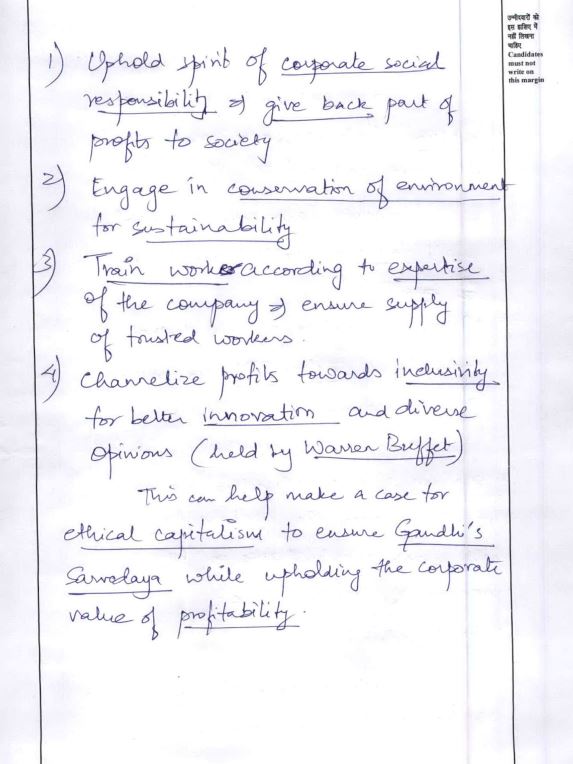 उम्मीदवारों को
इस हाशिए में
नहीं लिखना
चाहिए
Candidates
must not
write on
this margin
1) Uphold spirit of corporate social
responsibility → give back part of
profits to society
2) Engage in conservation of environment
for sustainability
3) Train workers according to expertise
of the company → ensure supply
of trusted workers.
4) Channelize profits towards inclusivity
for better innovation and diverse
opinions (held by Warren Buffet)
This can help make a case for
ethical capitalism to ensure Gandhi's
Sarvodaya while upholding the corporate
value of profitability.